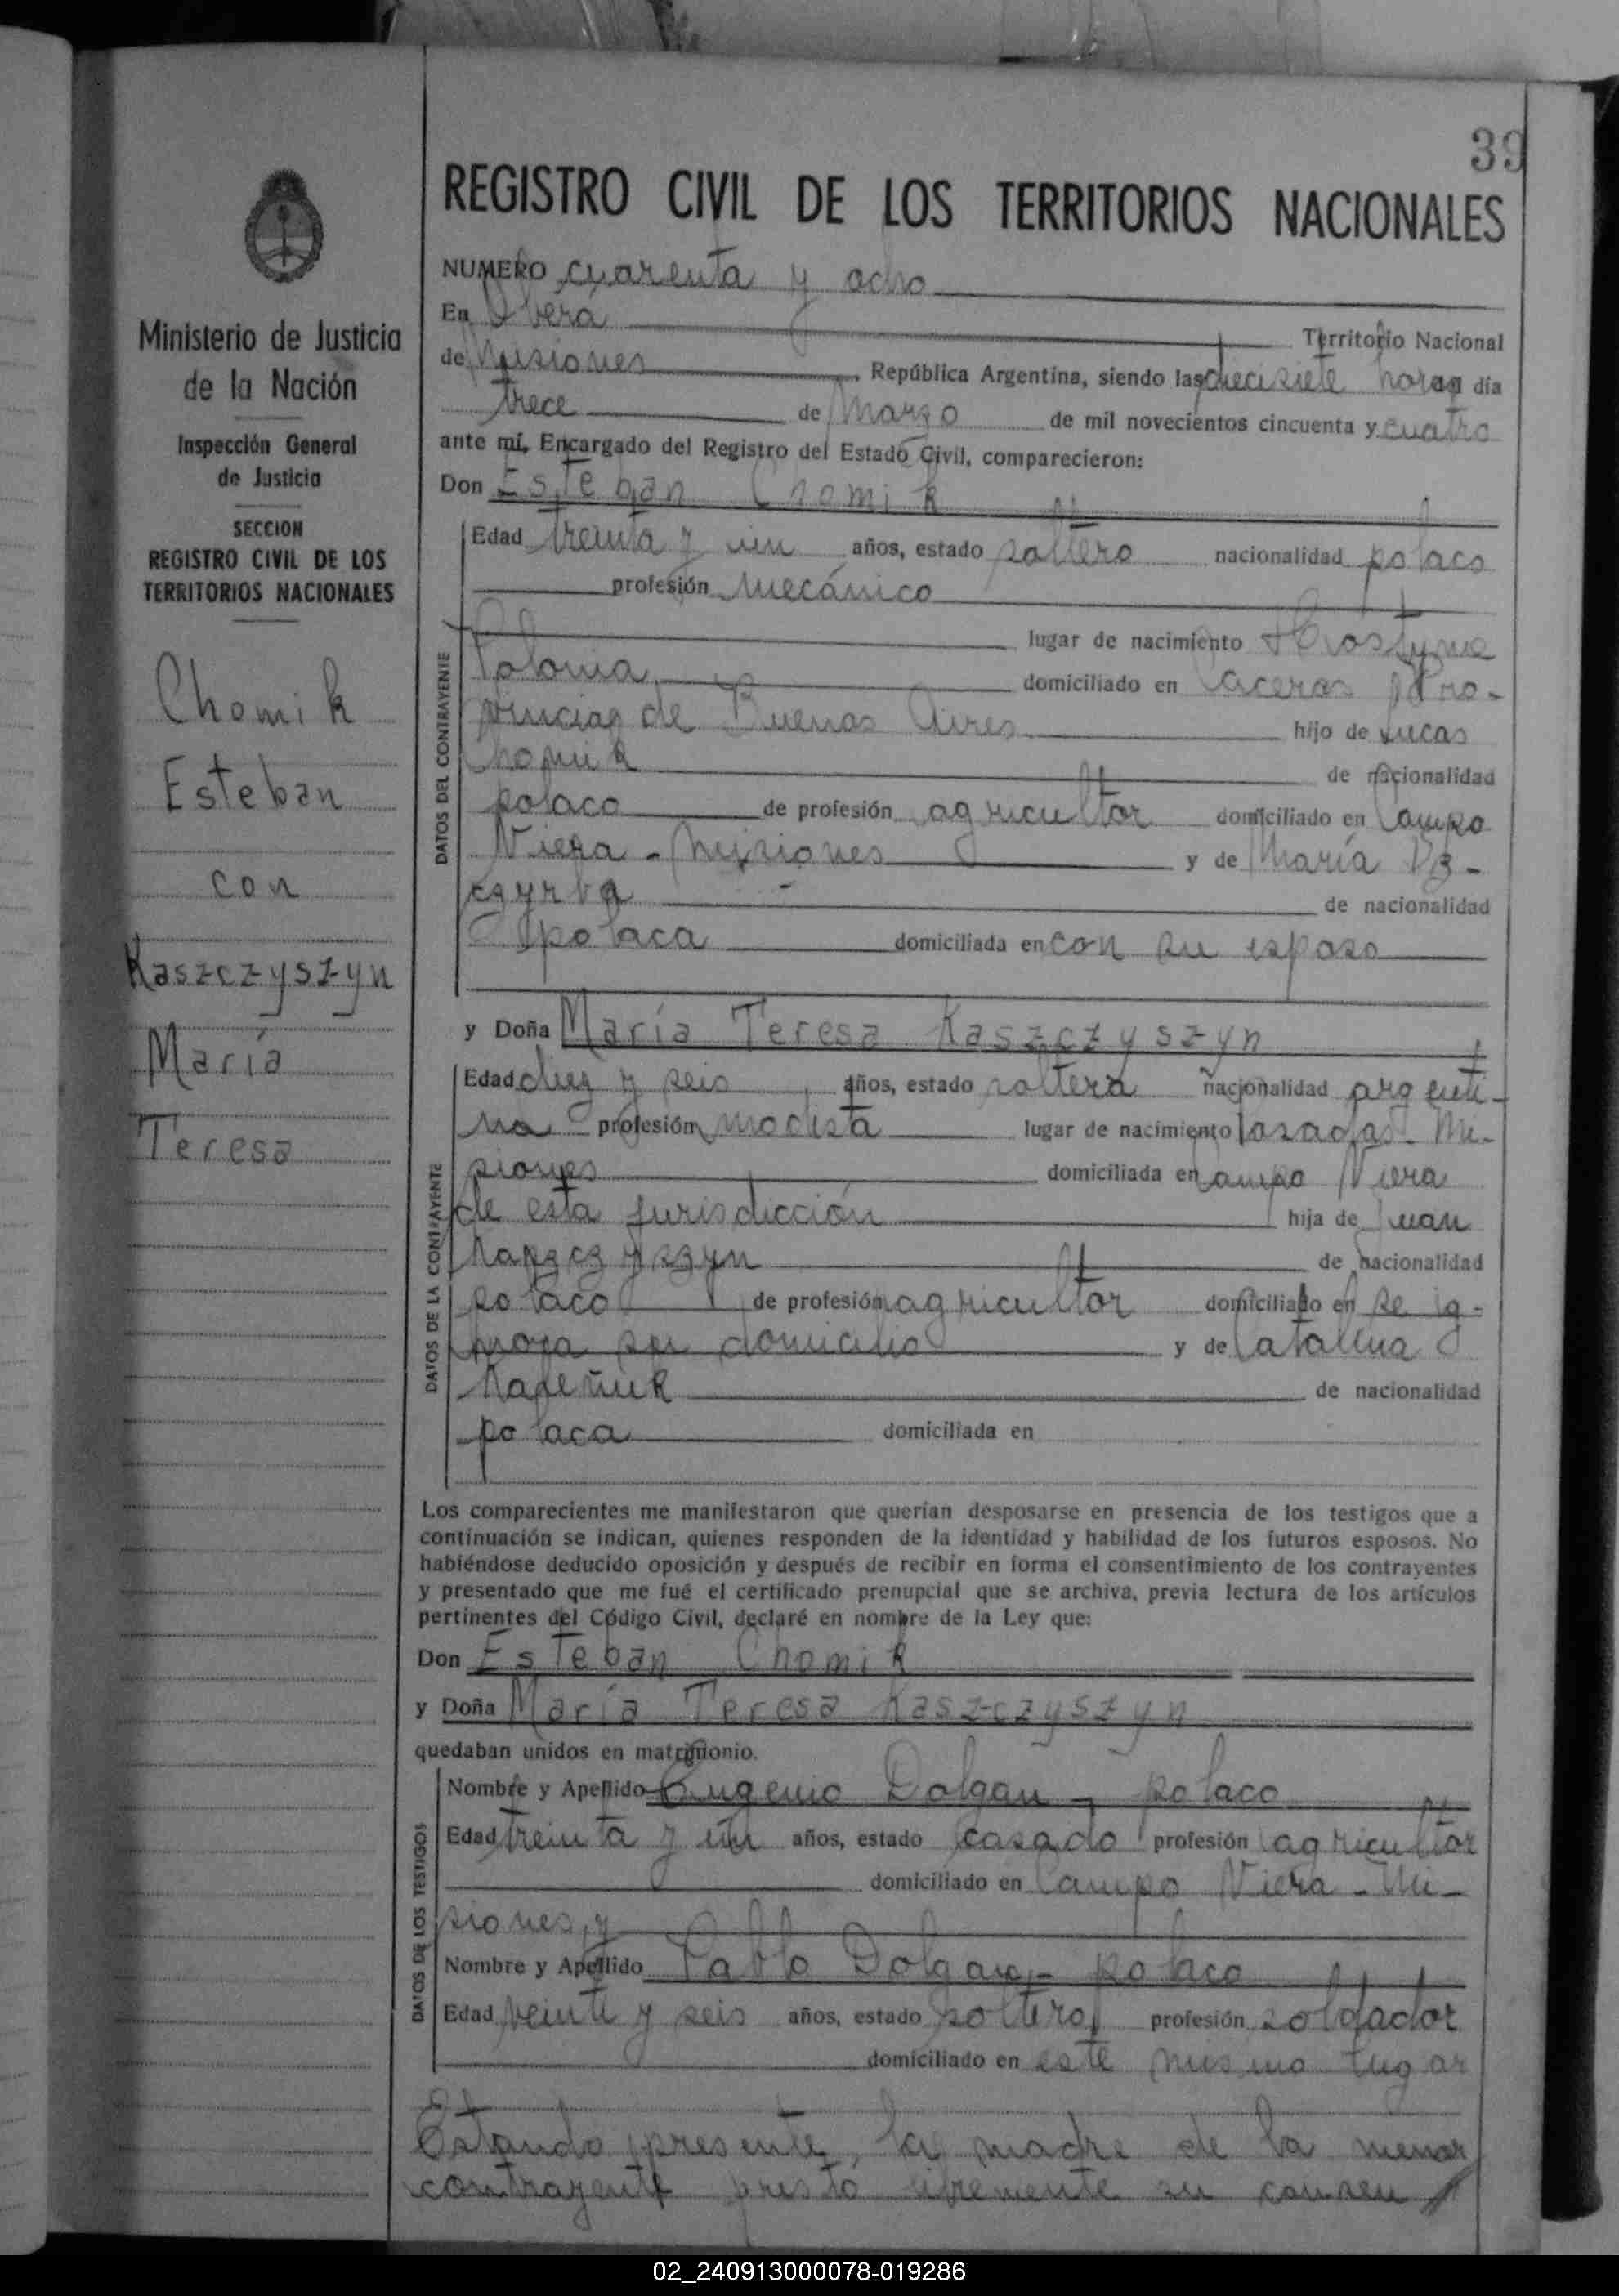 39
REGISTRO CIVIL DE LOS TERRITORIOS NACIONALES
Ministerio de Justicia
de la Nación
Inspección General
de Justicia
SECCION
REGISTRO CIVIL DE LOS
TERRITORIOS NACIONALES
Chomik
Esteban
con
Kaszczyszyn
María
Teresa
NUMERO cuarenta y ocho
En Oberá Territorio Nacional
de Misiones República Argentina, siendo las diecisiete horas día
trece de Marzo de mil novecientos cincuenta y cuatro
ante mí, Encargado del Registro del Estado Civil, comparecieron:
Don Esteban Chomik
DATOS DEL CONTRAYENTE
Edad treinta y un años, estado soltero nacionalidad polaco
profesión mecánico
lugar de nacimiento
Polonia domiciliado en Caceros Pro-
vincia de Buenos Aires hijo de Lucas
Chomik de nacionalidad
polaco de profesión agricultor domiciliado en Campo
Viera - Misiones y de María
de nacionalidad
polaca domiciliada en con su esposo
y Doña María Teresa Kaszczyszyn
DATOS DE LA CONTRAYENTE
Edad diez y seis años, estado soltera nacionalidad argenti-
na profesión modista lugar de nacimiento Posadas - Mi-
siones domiciliada en Campo Viera
de esta jurisdicción hija de Juan
Kaszczyszyn de nacionalidad
polaco de profesión agricultor domiciliado en se ig-
nora su domicilio y de Catalina
de nacionalidad
polaca domiciliada en
Los comparecientes me manifestaron que querían desposarse en presencia de los testigos que a
continuación se indican, quienes responden de la identidad y habilidad de los futuros esposos. No
habiéndose deducido oposición y después de recibir en forma el consentimiento de los contrayentes
y presentado que me fué el certificado prenupcial que se archiva, previa lectura de los artículos
pertinentes del Código Civil, declaré en nombre de la Ley que:
Don Esteban Chomik
y Doña María Teresa Kaszczyszyn
quedaban unidos en matrimonio.
DATOS DE LOS TESTIGOS
Nombre y Apellido Eugenio Dolgan - polaco
Edad treinta y un años, estado casado profesión agricultor
domiciliado en Campo Viera - Mi-
siones, y
Nombre y Apellido Pablo Dolgan - polaco
Edad veinti y seis años, estado soltero, profesión soldador
domiciliado en este mismo lugar
Estando presente, la madre de la menor
contrayente presto libremente su consen
02_240913000078-019286